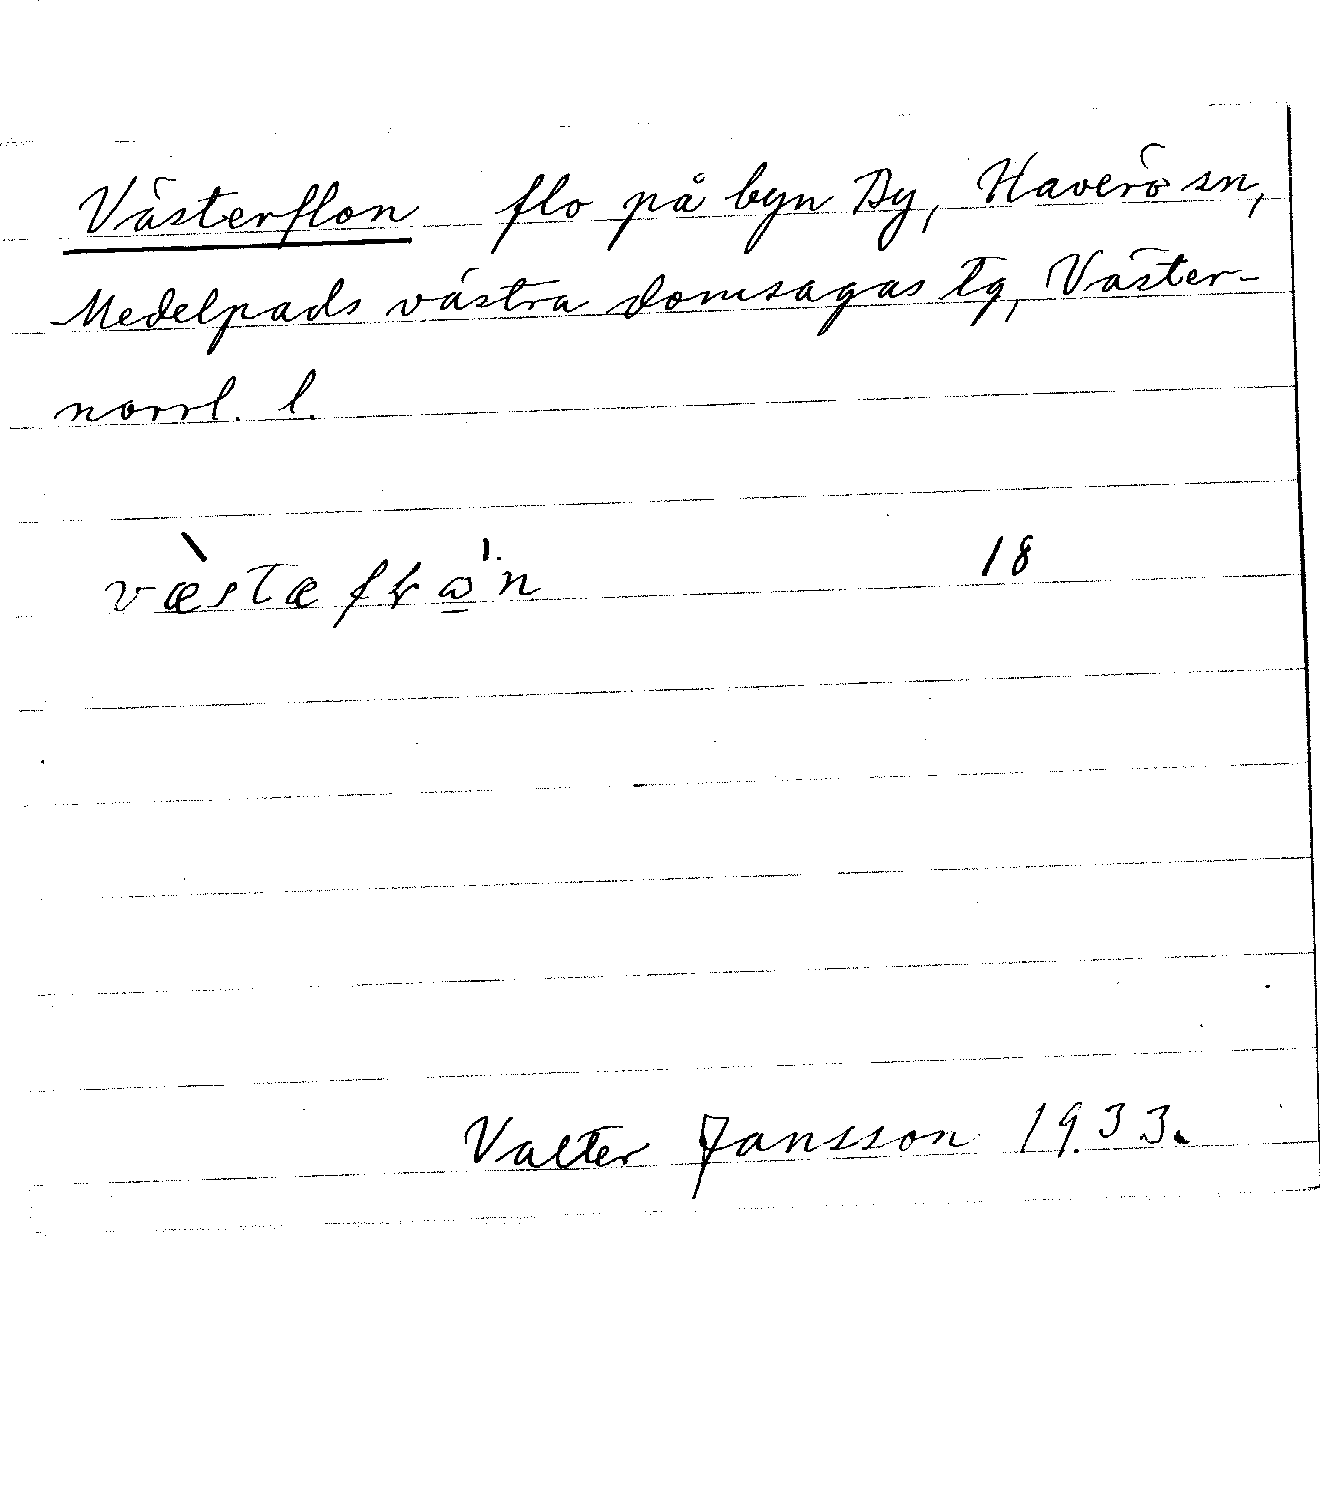 Västerflon flo på byn By, Haverö sn,
Medelpads västra domsagas tg, Väster-
norrl. l.
18
Valter Jansson 1933.